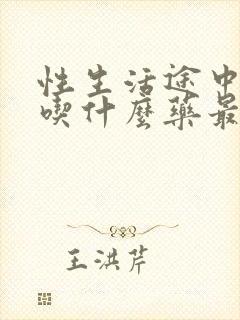 性生活途中
喫什麼藥最
王洪芹